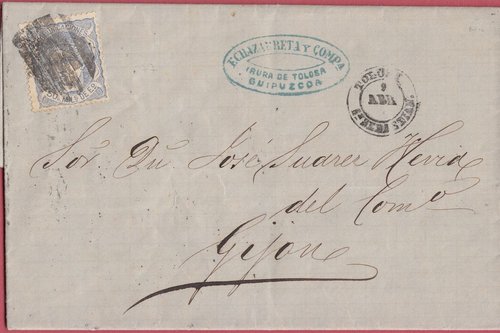 ECHAZARRETA Y COMPA
IRURA DE TOLOSA
GUIPUZCOA
TOLOSA
9
ABA
Sor. Dn. José Suarez Hevia
del Como
Gijon